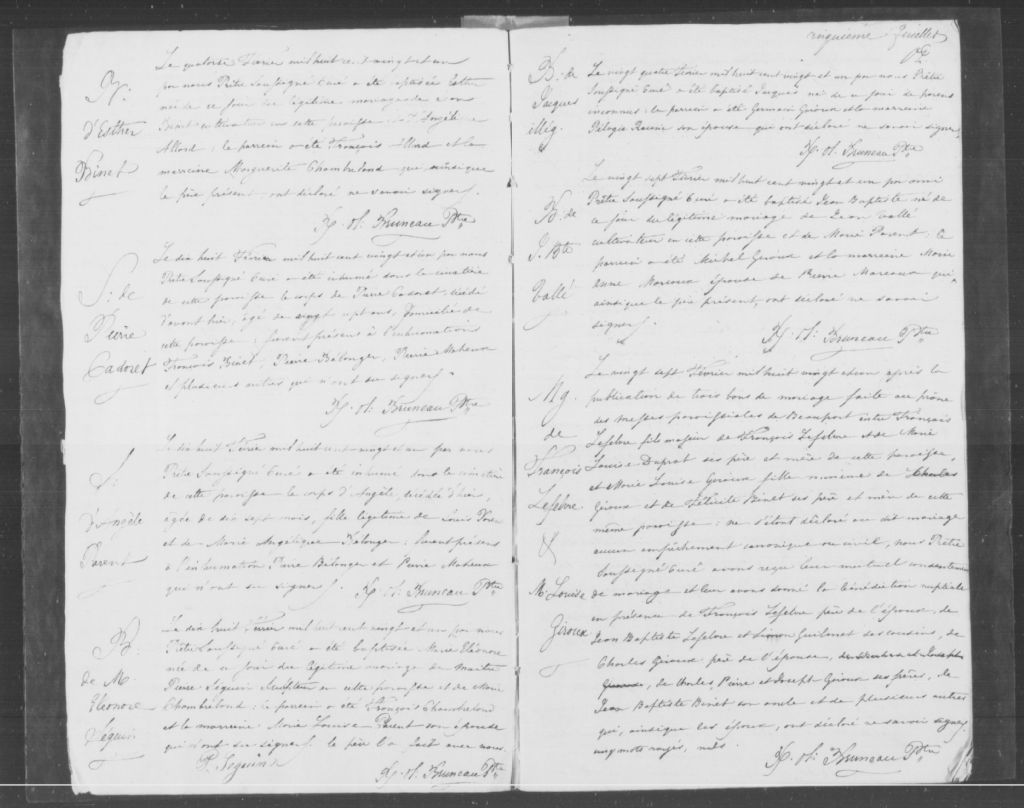 B.
d'Esther
Binet
Le quatorze Février mil huit cent vingt et un
par nous Prêtre Soussigné Curé a été baptisée Esther
née de ce jour du légitime mariage de
Binet cultivateur en cette paroisse et d'Angèle
Allard; le parrain a été François Allard et la
marraine Marguerite Chamberland qui ainsi que
le père présent ont déclaré ne savoir signer.
Bruneau Ptre
S: de
Pierre
Cadoret
Le dix huit Février mil huit cent vingt et un par nous
Prêtre Soussigné Curé a été inhumé dans le cimetière
de cette paroisse le corps de Pierre Cadoret, décédé
l'avant hier, agé de vingt sept ans, Domicilié de
cette paroisse; furent présens à l'inhumation
François Binet, Pierre Bélanger, Pierre Maheux
et plusieurs autres qui n'ont su signer.
Bruneau Ptre
S:
d'Angèle
Parent
Le dix huit Février mil huit cent vingt et un par nous
Prêtre Soussigné Curé a été inhumé dans le cimetière
de cette paroisse le corps d'Angèle, décédée d'hier,
agée de dix sept mois, fille légitime de Louis
et de Marie Angélique Bélanger; furent présens
à l'inhumation Pierre Bélanger et Pierre Maheux
qui n'ont su signer.
Bruneau Ptre
B.
de M.
Eléonore
Séguin
Le dix huit Février mil huit cent vingt et un par nous
Prêtre Soussigné Curé a été baptisée Marie Eléonore
née de ce jour du légitime mariage de Maitre
Pierre Séguin Sculpteur en cette paroisse et de Marie
Chamberland; le parrain a été François Chamberland
et la marraine Marie Louise Parent son épouse
qui n'ont su signer; le père l'a fait avec nous.
P. Seguin
Bruneau Ptre
cinquième feuillet
B. de
Jacques
illég.
Le vingt quatre Février mil huit cent vingt et un par nous Prêtre
Soussigné Curé a été baptisé Jacques né de ce jour de parens
inconnus; le parrain a été Germain Giroux et la marraine
Pélagie son épouse qui ont déclaré ne savoir signer.
Bruneau Ptre
B. de
J. Bte
Vallé
Le vingt sept Février mil huit cent vingt et un par nous
Prêtre Soussigné Curé a été baptisé Jean Baptiste né de
ce jour du légitime mariage de Jean Vallé
cultivateur en cette paroisse et de Marie Parent; le
parrain a été Michel Giroux et la marraine Marie
Anne Marcoux épouse de Pierre Marcoux qui,
ainsi que le père présent, ont déclaré ne savoir
signer.
Bruneau Ptre
Mg.
de
François
Lefebvre
&
M. Louise
Giroux
Le vingt sept Février mil huit vingt et un après la
publication de trois bans de mariage faite au prône
des Messes paroissiales de Beauport entre François
Lefebvre fils majeur de François Lefebvre et de Marie
Louise Duprat ses père et mère de cette paroisse,
et Marie Louise Giroux fille mineure de Charles
Giroux et de Félicité Binet ses père et mère de cette
même paroisse; ne s'étant déclaré au dit mariage
aucun empêchement canonique ou civil, nous Prêtre
Soussigné Curé avons reçu leur mutuel consentement
de mariage et leur avons donné la bénédiction nuptiale
en présence de François Lefebvre père de l'époux, de
Jean Baptiste Lefebvre et Simon Guilmet ses cousins, de
Charles Giroux père de l'épouse, et Joseph
Giroux, de Charles, Pierre et Joseph Giroux ses frères, de
Jean Baptiste Binet son oncle et de plusieurs autres
qui, ainsi que les époux, ont déclaré ne savoir signer.
cinq mots rayés, nuls.
Bruneau Ptre